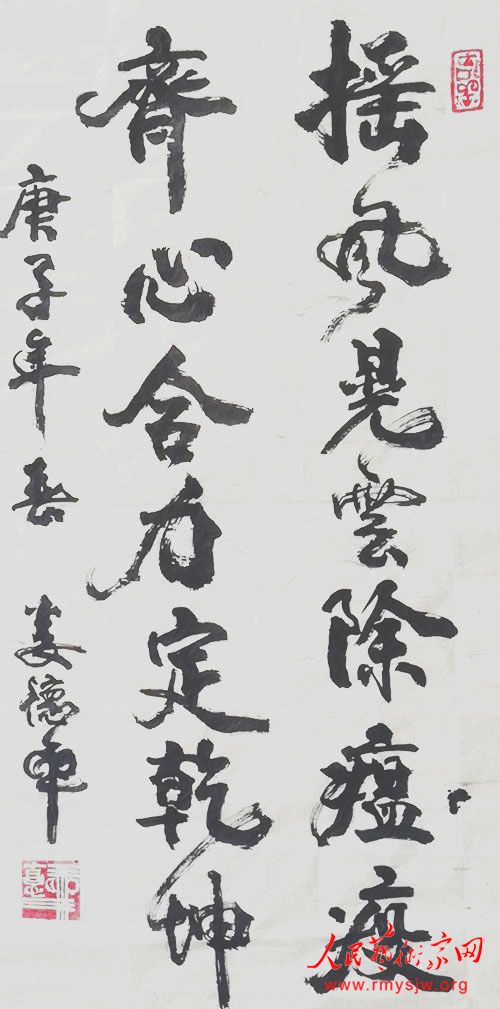 摇风晃雲除瘟疫
齊心合力定乾坤
庚子年春
姜德軍
人民藝術家网
www.rmysjw.org